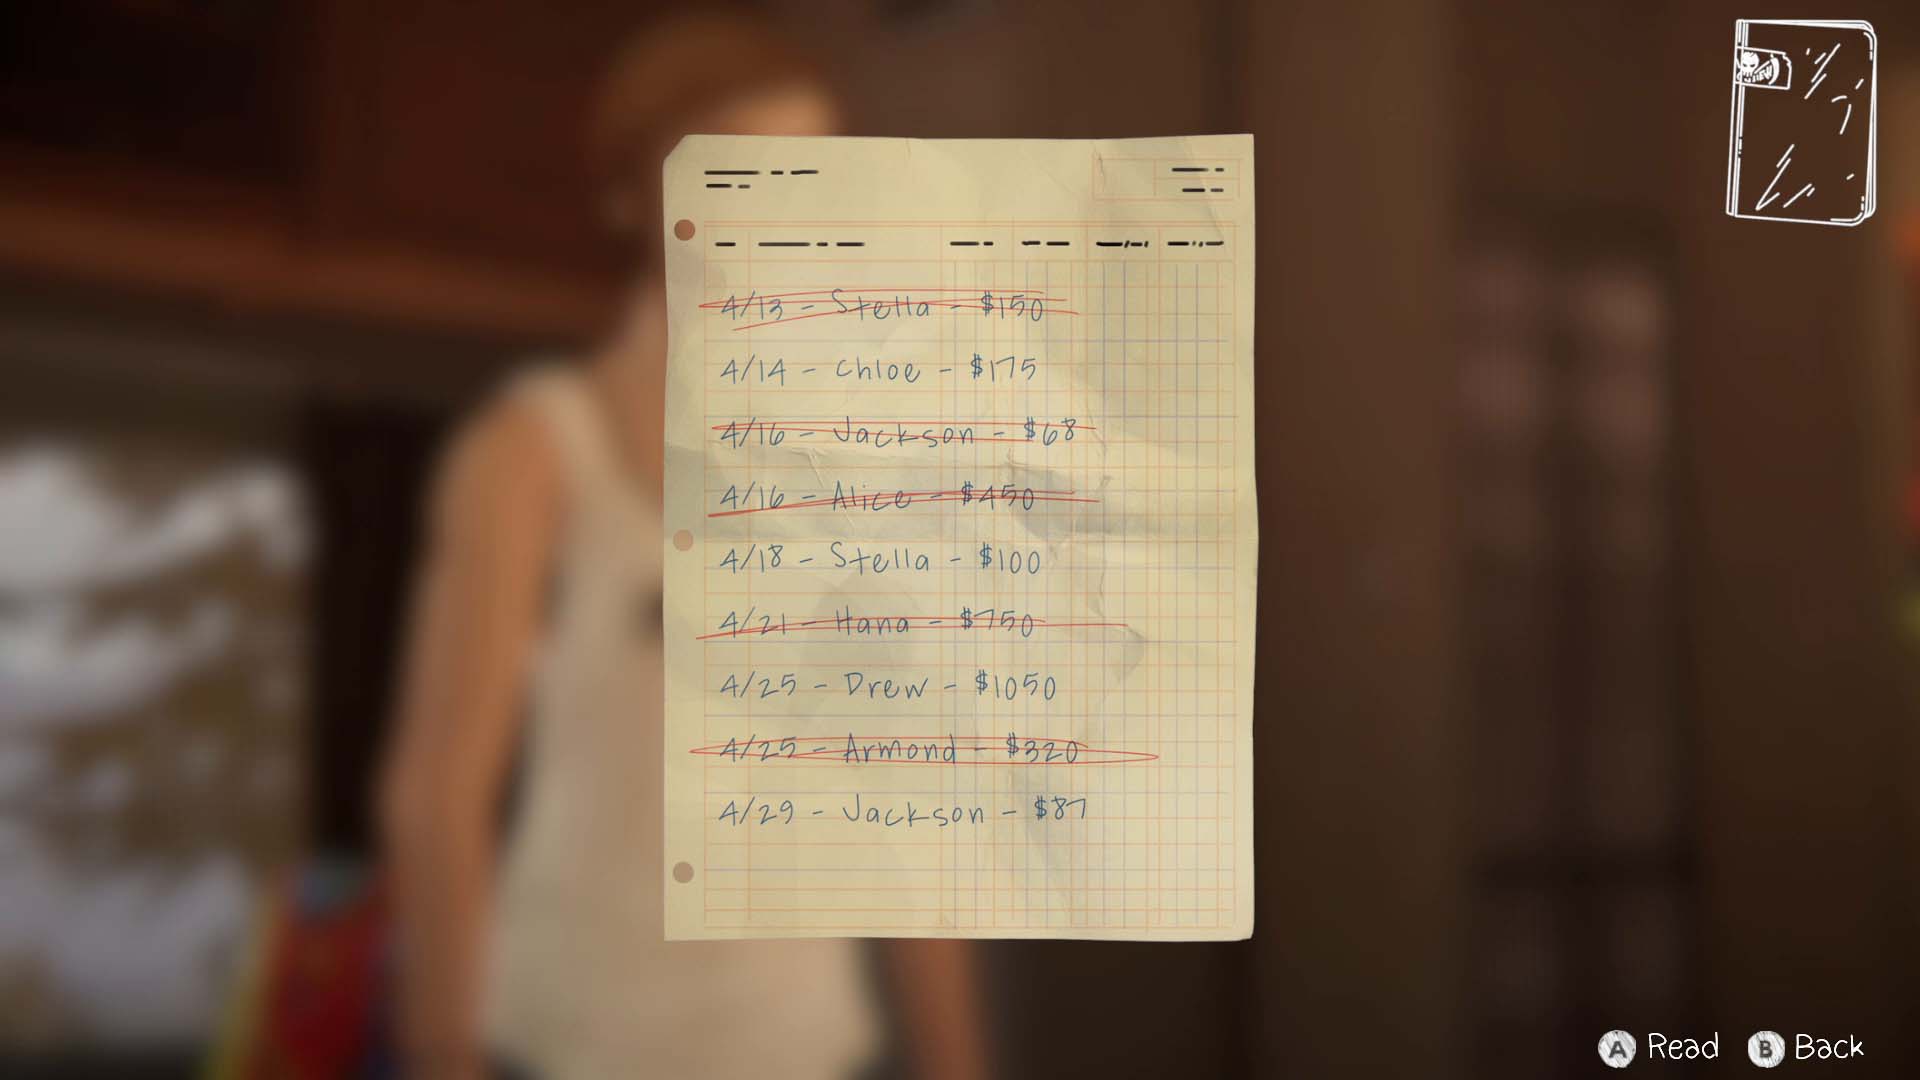 4/13 - Stella - $150
4/14 - Chloe - $175
4/16 - Jackson - $68
4/16 - Alice - $450
4/18 - Stella - $100
4/21 - Hana - $750
4/25 - Drew - $1050
4/25 - Armond - $320
4/29 - Jackson - $87
A Read B Back